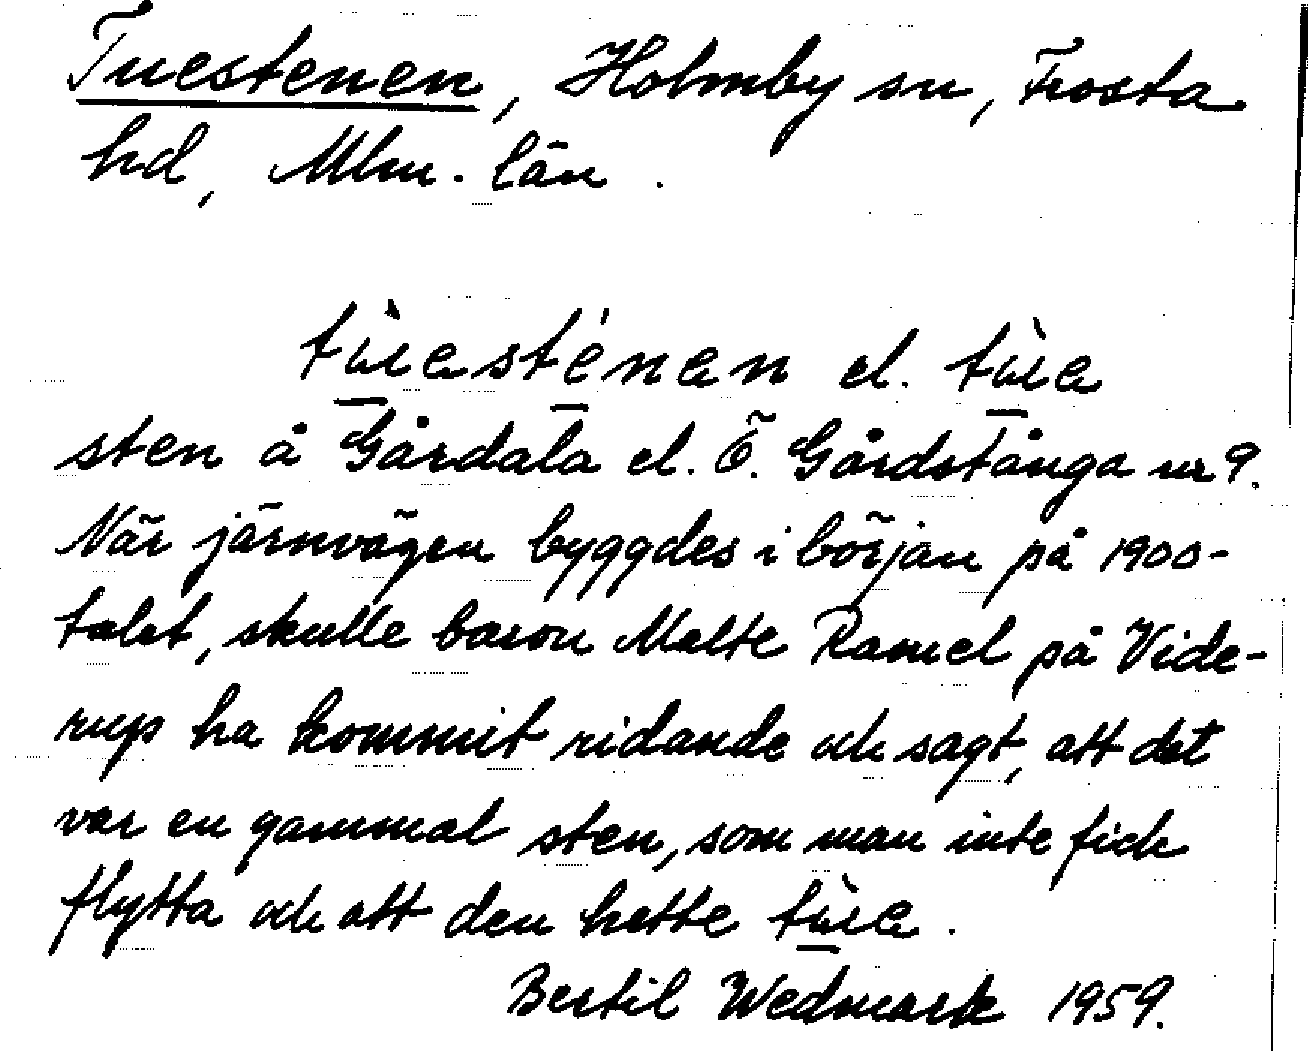 Tuestenen, Holmby sn, Frosta
hd, Mlm. län.
tùesténen el. tùe
sten å Gårdala el. Ö. Gårdstånga nr 9.
När järnvägen byggdes i början på 1900-
talet, skulle baron Malte Ramel på Vide-
rup ha kommit ridande och sagt, att det
var en gammal sten, som man inte fick
flytta och att den hette tùe.
Bertil Wedmark 1959.